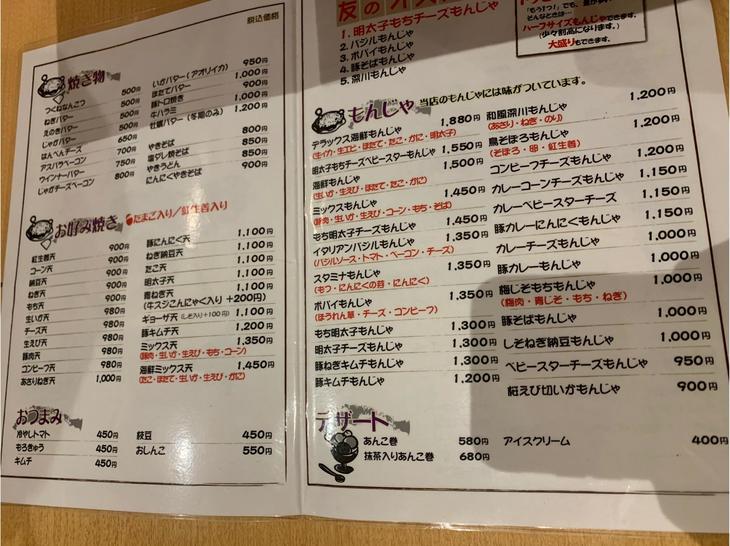 税込価格
焼き物
つくねなんこつ 500円
ねぎバター 500円
えのきバター 500円
じゃがバター 650円
はんぺんチーズ 700円
アスパラベーコン 750円
ウインナーバター 800円
じゃがチーズベーコン 900円
いかバター(アオリイカ) 950円
ほたてバター 1,000円
豚トロ焼き 900円
牛ハラミ 1,000円
牡蠣バター(冬期のみ) 1,200円
やきそば 800円
塩ダレ焼そば 850円
やきうどん 850円
にんにくやきそば 900円
お好み焼き
たまご入り/紅生姜入り
紅生姜天 900円
コーン天 900円
納豆天 900円
ねぎ天 900円
もち天 900円
生いか天 980円
チーズ天 980円
生えび天 980円
豚肉天 980円
コンビーフ天 980円
あさりねぎ天 1,000円
豚にんにく天 1,100円
ねぎ納豆天 1,100円
たこ天 1,100円
明太子天 1,100円
青ねぎ天 1,100円
(牛スジこんにゃく入り +200円)
ギョーザ天 (しそ入り+100円) 1,100円
豚キムチ天 1,200円
ミックス天 1,350円
(豚肉・生いか・生えび・もち・コーン)
海鮮ミックス天 1,450円
(たこ・ほたて・生いか・生えび・かに)
おつまみ
冷やしトマト 450円
もろきゅう 450円
キムチ 450円
枝豆 450円
おしんこ 550円
1. 明太子もちチーズもんじゃ
2. バジルもんじゃ
3. ポパイもんじゃ
4. 豚そばもんじゃ
5. 深川もんじゃ
ハーフサイズもんじゃできます。
(少々割高になります。)
大盛りもできます。
もんじゃ 当店のもんじゃには味がついています。
デラックス海鮮もんじゃ 1,880円
(生イカ・生エビ・ほたて・たこ・かに・明太子)
明太子もちチーズベビースターもんじゃ 1,550円
海鮮もんじゃ 1,500円
(生いか・生えび・ほたて・たこ・かに)
ミックスもんじゃ 1,550円
(豚肉・生いか・生えび・コーン・もち・そば)
もち明太子チーズもんじゃ 1,450円
イタリアンバジルもんじゃ 1,350円
(バジルソース・トマト・ベーコン・チーズ)
スタミナもんじゃ 1,350円
(もつ・にんにくの芽・にんにく)
ポパイもんじゃ 1,350円
(ほうれん草・チーズ・コンビーフ)
もち明太子もんじゃ 1,300円
明太子チーズもんじゃ 1,300円
豚ねぎキムチもんじゃ 1,300円
豚キムチもんじゃ 1,200円
和風深川もんじゃ 1,200円
(あさり・ねぎ・のり)
鳥そぼろもんじゃ 1,200円
(そぼろ・卵・紅生姜)
コンビーフチーズもんじゃ 1,200円
カレーコーンチーズもんじゃ 1,150円
カレーベビースターチーズもんじゃ 1,150円
豚カレーにんにくもんじゃ 1,150円
カレーチーズもんじゃ 1,000円
豚カレーもんじゃ 1,000円
梅しそもちもんじゃ 1,000円
(梅肉・青じそ・もち・ねぎ)
豚そばもんじゃ 1,000円
しそねぎ納豆もんじゃ 1,000円
ベビースターチーズもんじゃ 950円
桜えび切いかもんじゃ 900円
デザート
あんこ巻 580円
抹茶入りあんこ巻 680円
アイスクリーム 400円